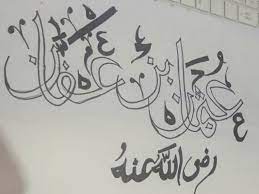 عثمان بن عفان
رضی اللہ عنہ